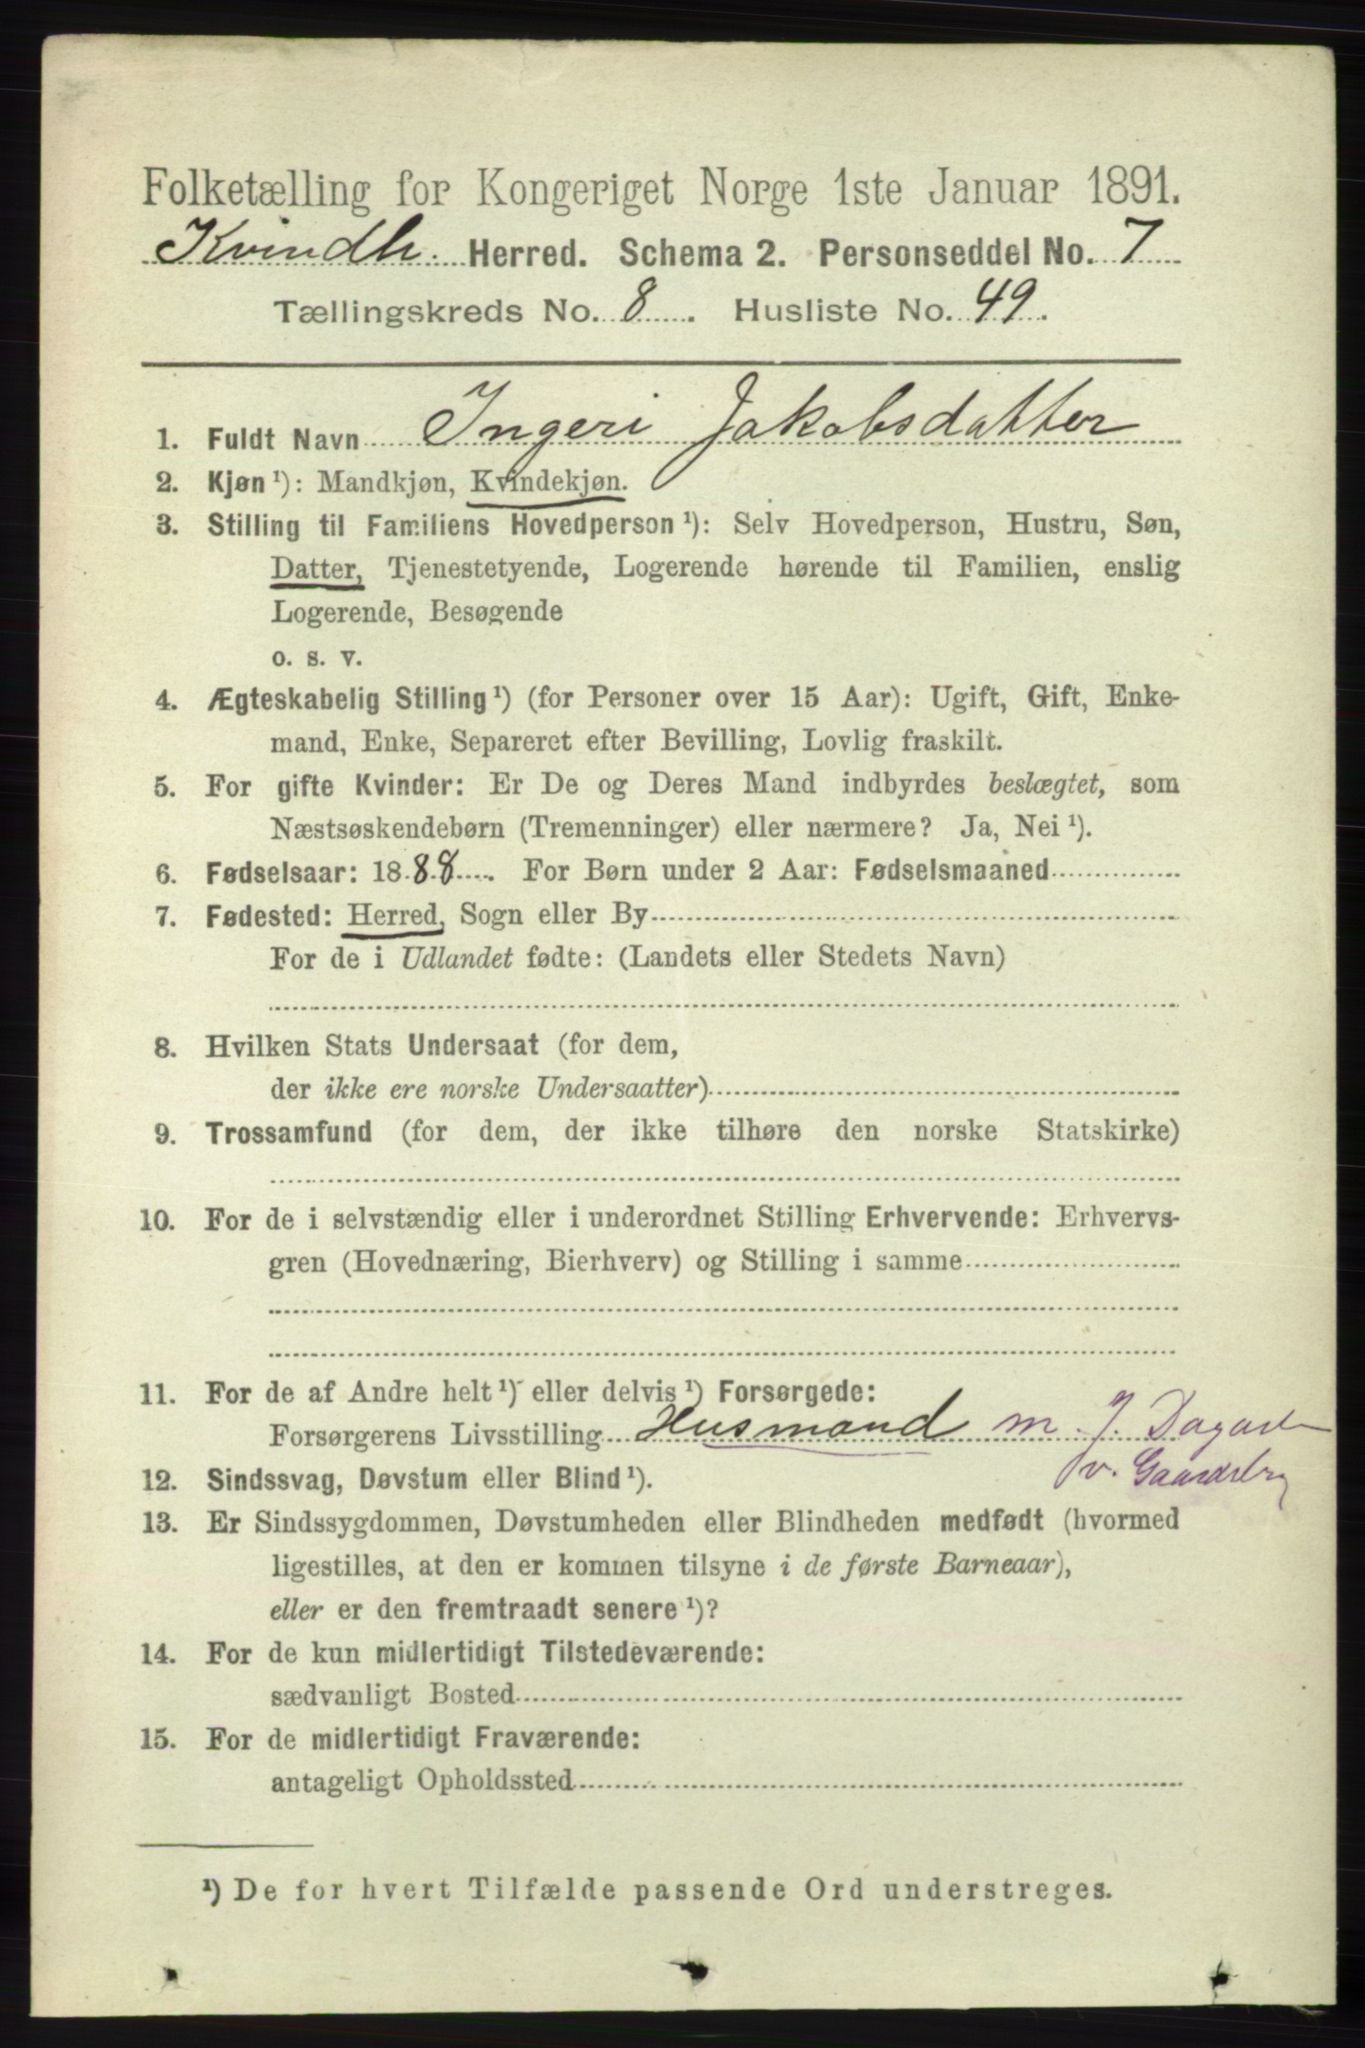 Folketælling for Kongeriget Norge 1ste Januar 1891.
Kvindh. Herred. Schema 2. Personseddel No. 7
Tællingskreds No. 8. Husliste No. 49.
1. Fuldt Navn Ingeri Jakobsdatter
2. Kjøn ¹): Mandkjøn, Kvindekjøn.
3. Stilling til Familiens Hovedperson ¹): Selv Hovedperson, Hustru, Søn,
Datter, Tjenestetyende, Logerende hørende til Familien, enslig
Logerende, Besøgende
o. s. v.
4. Ægteskabelig Stilling ¹) (for Personer over 15 Aar): Ugift, Gift, Enke-
mand, Enke, Separeret efter Bevilling, Lovlig fraskilt.
5. For gifte Kvinder: Er De og Deres Mand indbyrdes beslægtet, som
Næstsøskendebørn (Tremenninger) eller nærmere? Ja, Nei ¹).
6. Fødselsaar: 1888. For Børn under 2 Aar: Fødselsmaaned
7. Fødested: Herred, Sogn eller By
For de i Udlandet fødte: (Landets eller Stedets Navn)
8. Hvilken Stats Undersaat (for dem,
der ikke ere norske Undersaatter)
9. Trossamfund (for dem, der ikke tilhøre den norske Statskirke)
10. For de i selvstændig eller i underordnet Stilling Erhvervende: Erhvervs-
gren (Hovednæring, Bierhverv) og Stilling i samme
11. For de af Andre helt ¹) eller delvis ¹) Forsørgede:
Forsørgerens Livsstilling Husmand m. J. Dagarb
v. Gaardsbrg
12. Sindssvag, Døvstum eller Blind ¹).
13. Er Sindssygdommen, Døvstumheden eller Blindheden medfødt (hvormed
ligestilles, at den er kommen tilsyne i de første Barneaar),
eller er den fremtraadt senere ¹)?
14. For de kun midlertidigt Tilstedeværende:
sædvanligt Bosted
15. For de midlertidigt Fraværende:
antageligt Opholdssted
¹) De for hvert Tilfælde passende Ord understreges.